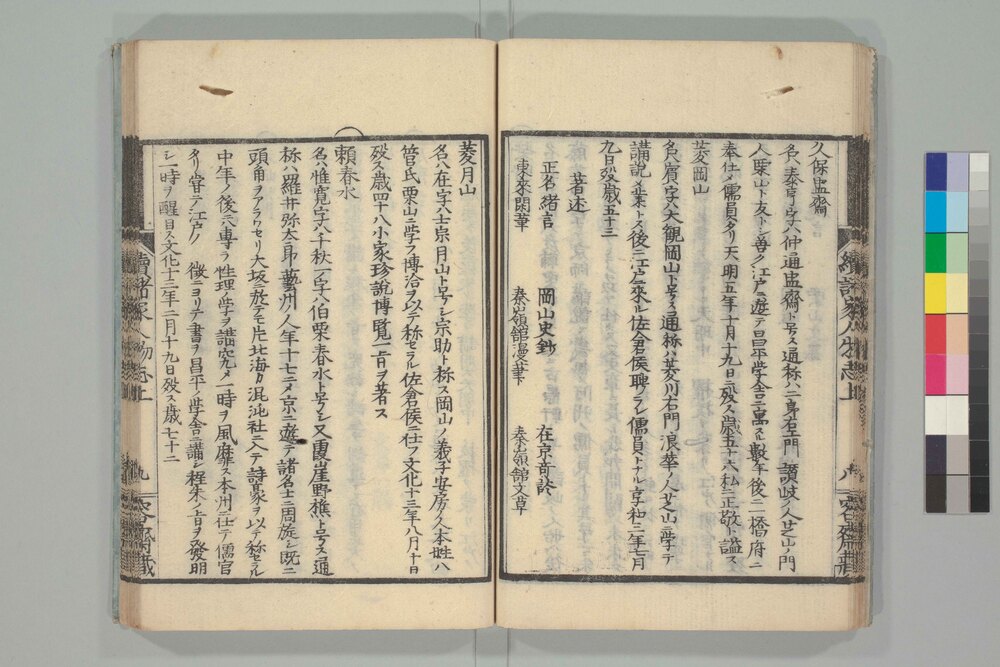 久保盅齋
名ハ泰亨字ハ仲通盅齋ト号ス通称ハ二身右エ門讃岐ノ人芝山ノ門
人栗山ト友トシ善ク江戸ニ遊テ昌平学舎ニ寓スル數年後ニ一橋府ニ
奉仕メ儒員タリ天明五年十月十九日ニ歿ス歳五十六私ニ正敬ト謚ス
菱岡山
名ハ賓字ハ大観岡山ト号ス通称ハ菱川右門浪華ノ人芝山ニ学テ
講説ヲ業トス後ニ江戸ニ來ル佐倉侯聘ラレ儒員トナル享和三年七月
九日歿歳五十三
著述
正名緒言 岡山史鈔 在京奇談
東來閑筆 秦嶺館漫筆 秦嶺館文草
續諸家人物志上 八 官齋藏
菱月山
名ハ在字ハ士宗月山ト号シ宗助ト称ス岡山ノ義子安房ノ人本姓ハ
菅氏栗山ニ学フ博洽ヲ以テ称セラル佐倉侯ニ仕フ文化十三年八月十日
歿ス歳四十八小家珍説博覧一言ヲ著ス
頼春水
名ハ惟寛字ハ千秋一字ハ伯栗春水ト号シ又霞崖野樵ト号ス通
称ハ羅井弥太郎藝州ノ人年十七ニメ京ニ遊テ諸名士ニ周旋シ既ニ
頭角ヲアラワセリ大坂ニ遊テモ片北海カ混沌社ニ入テ詩豪ヲ以テ称セラル
中年ノ後ニ專ラ性理学ヲ講究ノ一時ヲ風靡ス本州ニ仕テ儒官
タリ嘗テ江戸ノ徴ニヨリテ書ヲ昌平ノ學舎ニ講シ程朱ノ旨ヲ發明
シ一時ヲ醒目ス文化十三年二月十九日歿ス歳七十二
續諸家人物志上 九 官齋藏